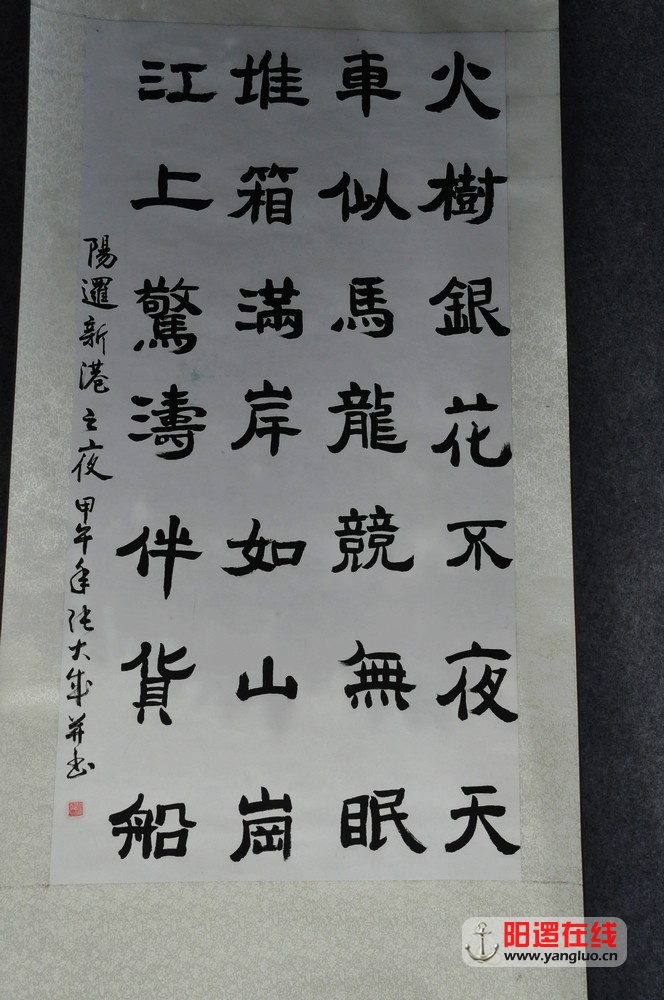 火樹銀花不夜天
車似馬龍競無眠
堆箱滿岸如山崗
江上驚濤伴貨船
陽邏新港之夜 甲午年 張大成 并書
阳逻在线
www.yangluo.cn